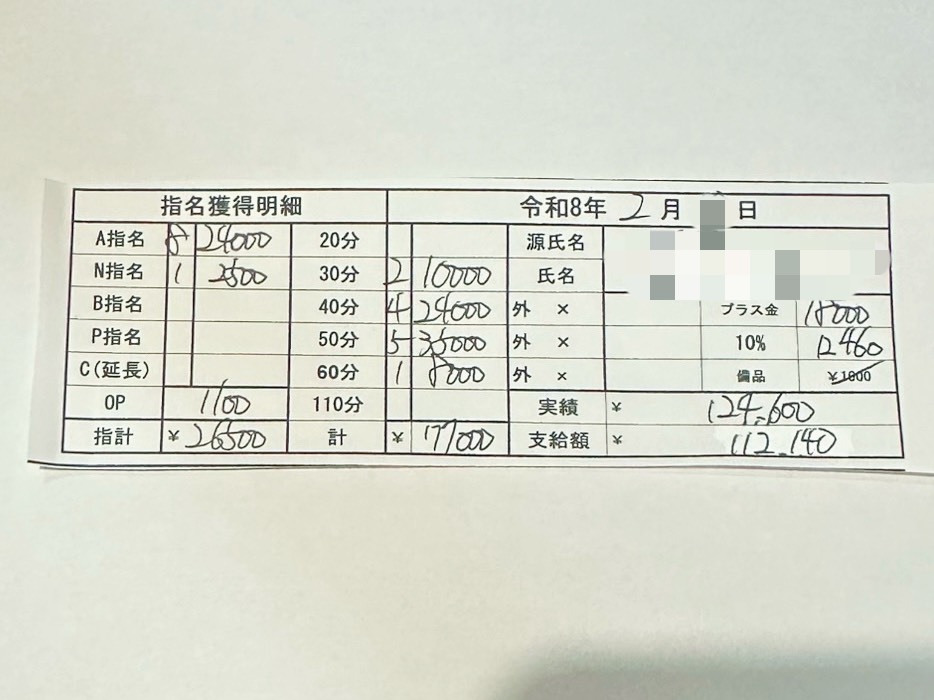 指名獲得明細 令和8年 2月 日
A指名 8 24000 20分 源氏名
N指名 1 2500 30分 2 10000 氏名
B指名 40分 4 24000 外 × プラス金 18000
P指名 50分 5 35000 外 × 10% 12460
C(延長) 60分 1 8000 外 × 備品 ¥1000
OP 1100 110分 実績 ¥ 124.600
指計 ¥ 26500 計 ¥ 77000 支給額 ¥ 112.140